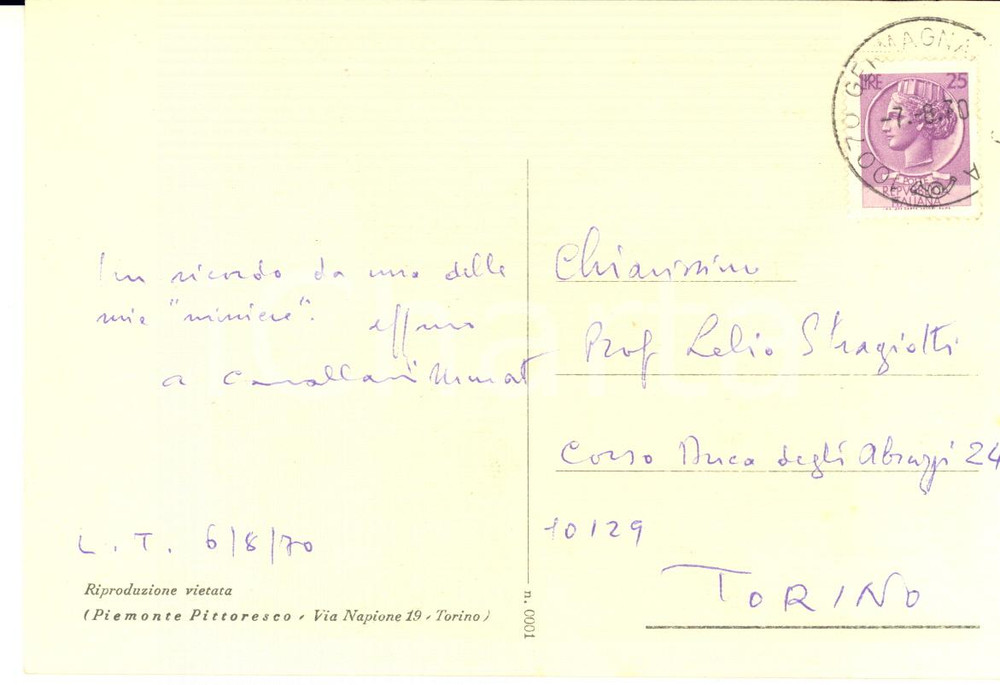 10070 GERMAGNA
LIRE 25
-7.-8.70
REPVBBLICA
ITALIANA
Un ricordo da una delle
mie "miniere".
a Cavallari Murat
L. T. 6/8/70
Riproduzione vietata
(Piemonte Pittoresco - Via Napione 19 - Torino)
n. 0001
Chiarissimo
Prof Lelio Stragiotti
Corso Duca degli Abruzzi 24
10129
TORINO